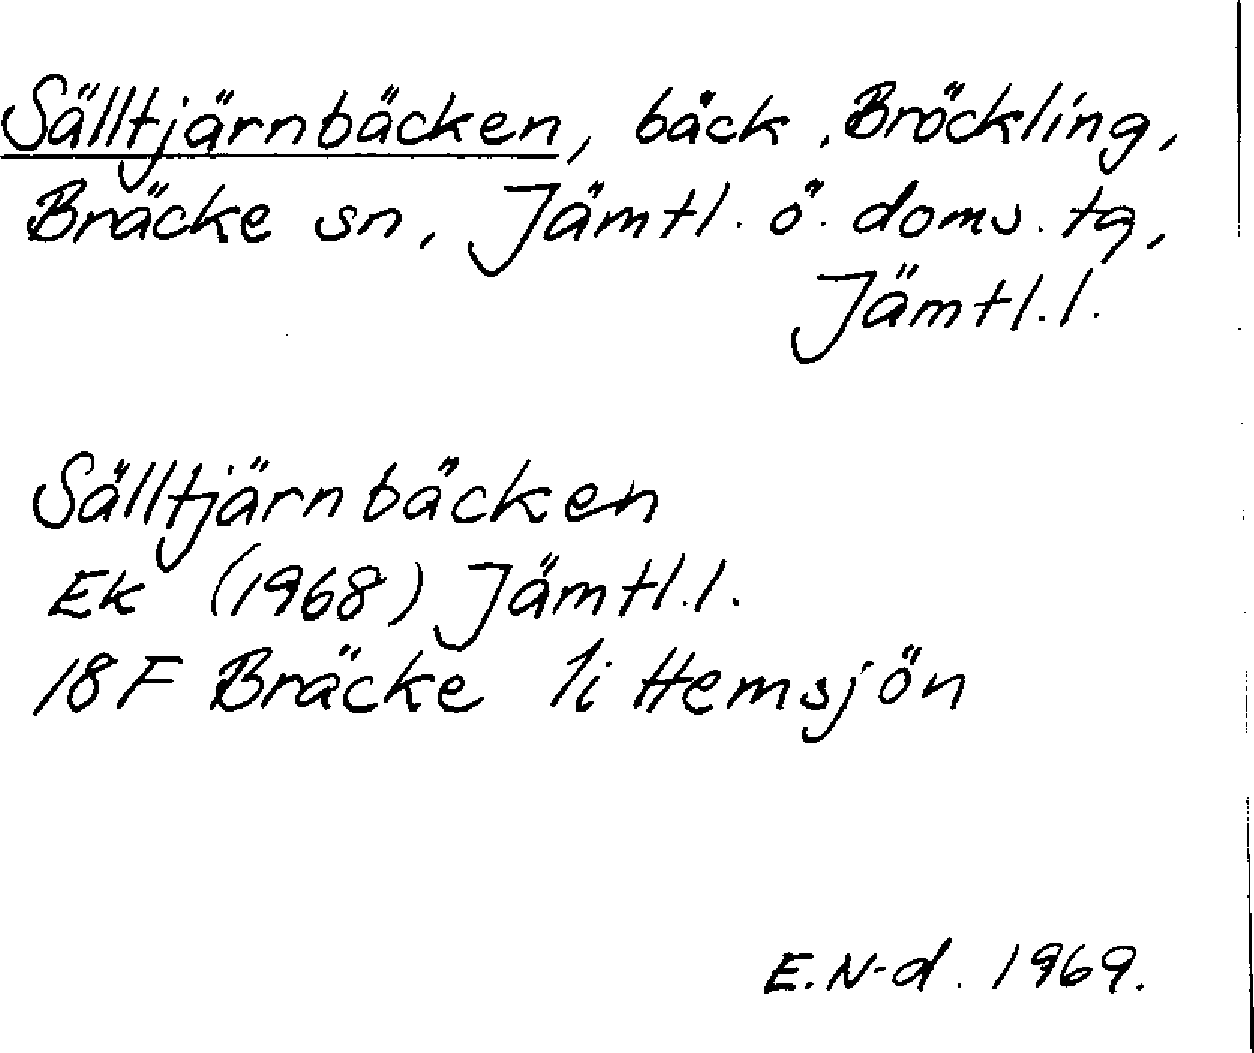 Sälltjärnbäcken, bäck, Bröckling,
Bräcke sn, Jämtl. ö. doms. tg,
Jämtl.l.
Sälltjärnbäcken
Ek (1968) Jämtl.l.
18F Bräcke 1i Hemsjön
E.N-d. 1969.